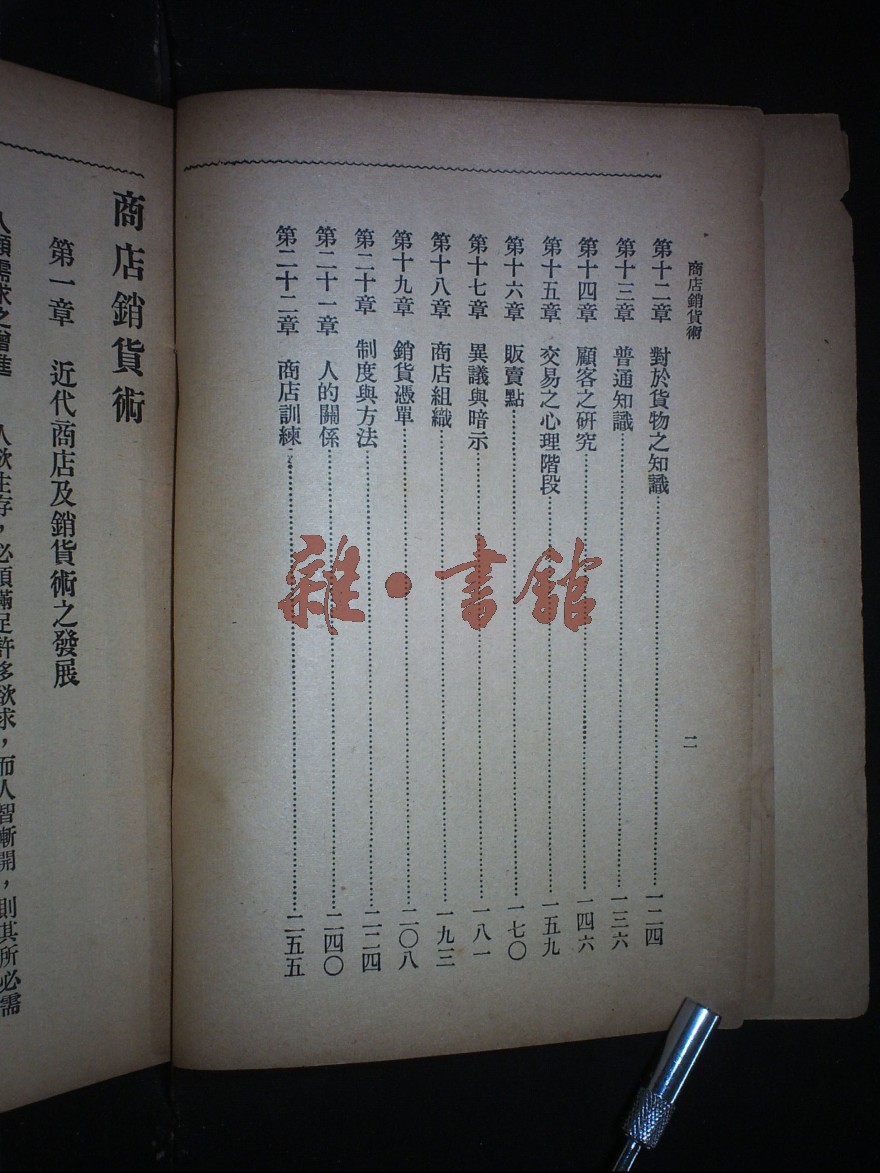 商店銷貨術
二
第十二章 對於貨物之知識……一二四
第十三章 普通知識……一三六
第十四章 顧客之研究……一四六
第十五章 交易之心理階段……一五九
第十六章 販賣點……一七〇
第十七章 異議與暗示……一八一
第十八章 商店組織……一九三
第十九章 銷貨憑單……二〇八
第二十章 制度與方法……二二四
第二十一章 人的關係……二四〇
第二十二章 商店訓練……二五五
雜·書館
商店銷貨術
第一章 近代商店及銷貨術之發展
人類需求之增進 人欲生存，必須滿足許多欲求，而人智漸開，則其所必需